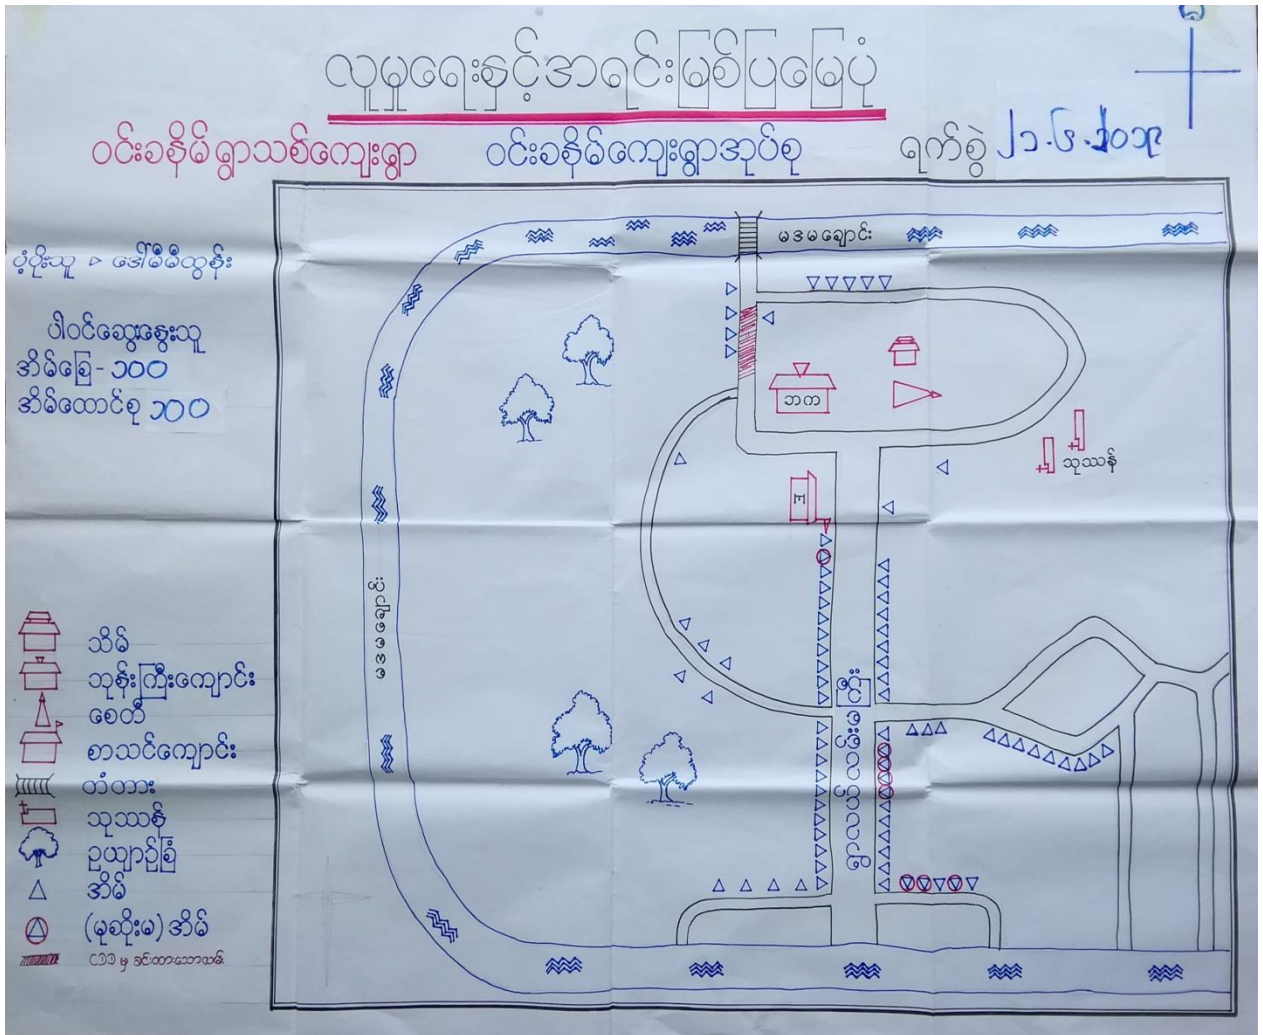 မ
လူမှုရေးနှင့်အရင်းမြစ်ပြမြေပုံ
ဝင်းခနိမ်ရွာသစ်ကျေးရွာ ဝင်းခနိမ်ကျေးရွာအုပ်စု ရက်စွဲ ၂၁.၆.၂၀၁၉
ပံ့ပိုးသူ ဒေါ်မီမီထွန်း
ပါဝင်ဆွေးနွေးသူ
အိမ်ခြေ - ၁၀၀
အိမ်ထောင်စု ၁၀၀
မဒမချောင်း
ဘက
သုဿန်
E
ရွာလယ်လမ်းမကြီး
သိမ်
ဘုန်းကြီးကျောင်း
စေတီ
စာသင်ကျောင်း
တံတား
သုဿန်
ဥယျာဉ်ခြံ
အိမ်
(မုဆိုးမ) အိမ်
CDD မှ ခင်းထားသောလမ်း